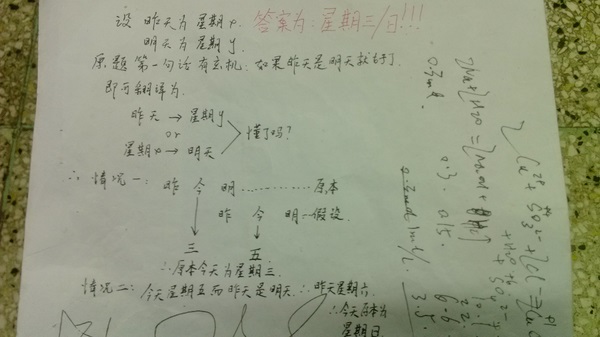 设 昨天为星期x. 答案为:星期三/日!!!
明天为星期y.
原题第一句话有玄机:如果昨天是明天就好了
即可翻译为:
昨天 → 星期y
or
星期x → 明天
懂了吗?
∴ 情况一: 昨 今 明………… 原本
昨 今 明—假设
三 五
∴原本今天为星期三.
情况二: 今天星期五而昨天是明天. ∴昨天星期六
∴今天原本为
星期日
0.3mol
0.3. 0.15.